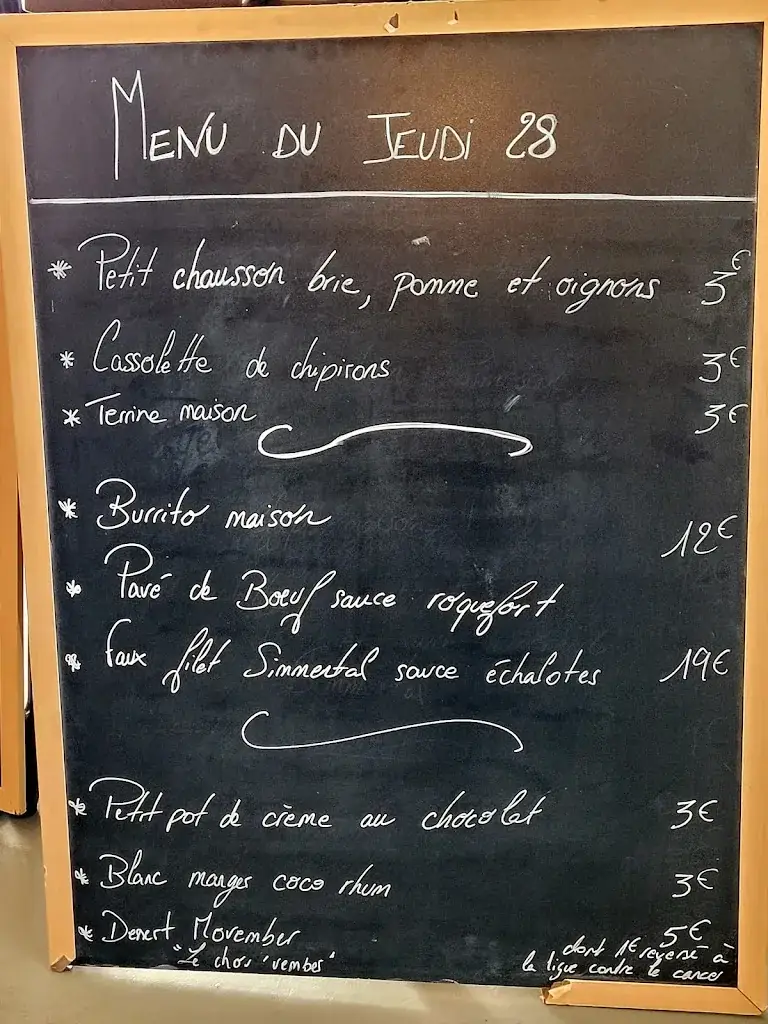 MENU DU JEUDI 28
* Petit chausson brie, pomme et oignons 3€
* Cassolette de chipirons 3€
* Terrine maison 3€
* Burrito maison 12€
* Pavé de Boeuf sauce roquefort
* Faux filet Simmental sauce échalotes 19€
* Petit pot de crème au chocolat 3€
* Blanc manger coco rhum 3€
* Dessert Movember 5€
"Le chou'vember"
dont 1€ reversé à
la ligue contre le cancer